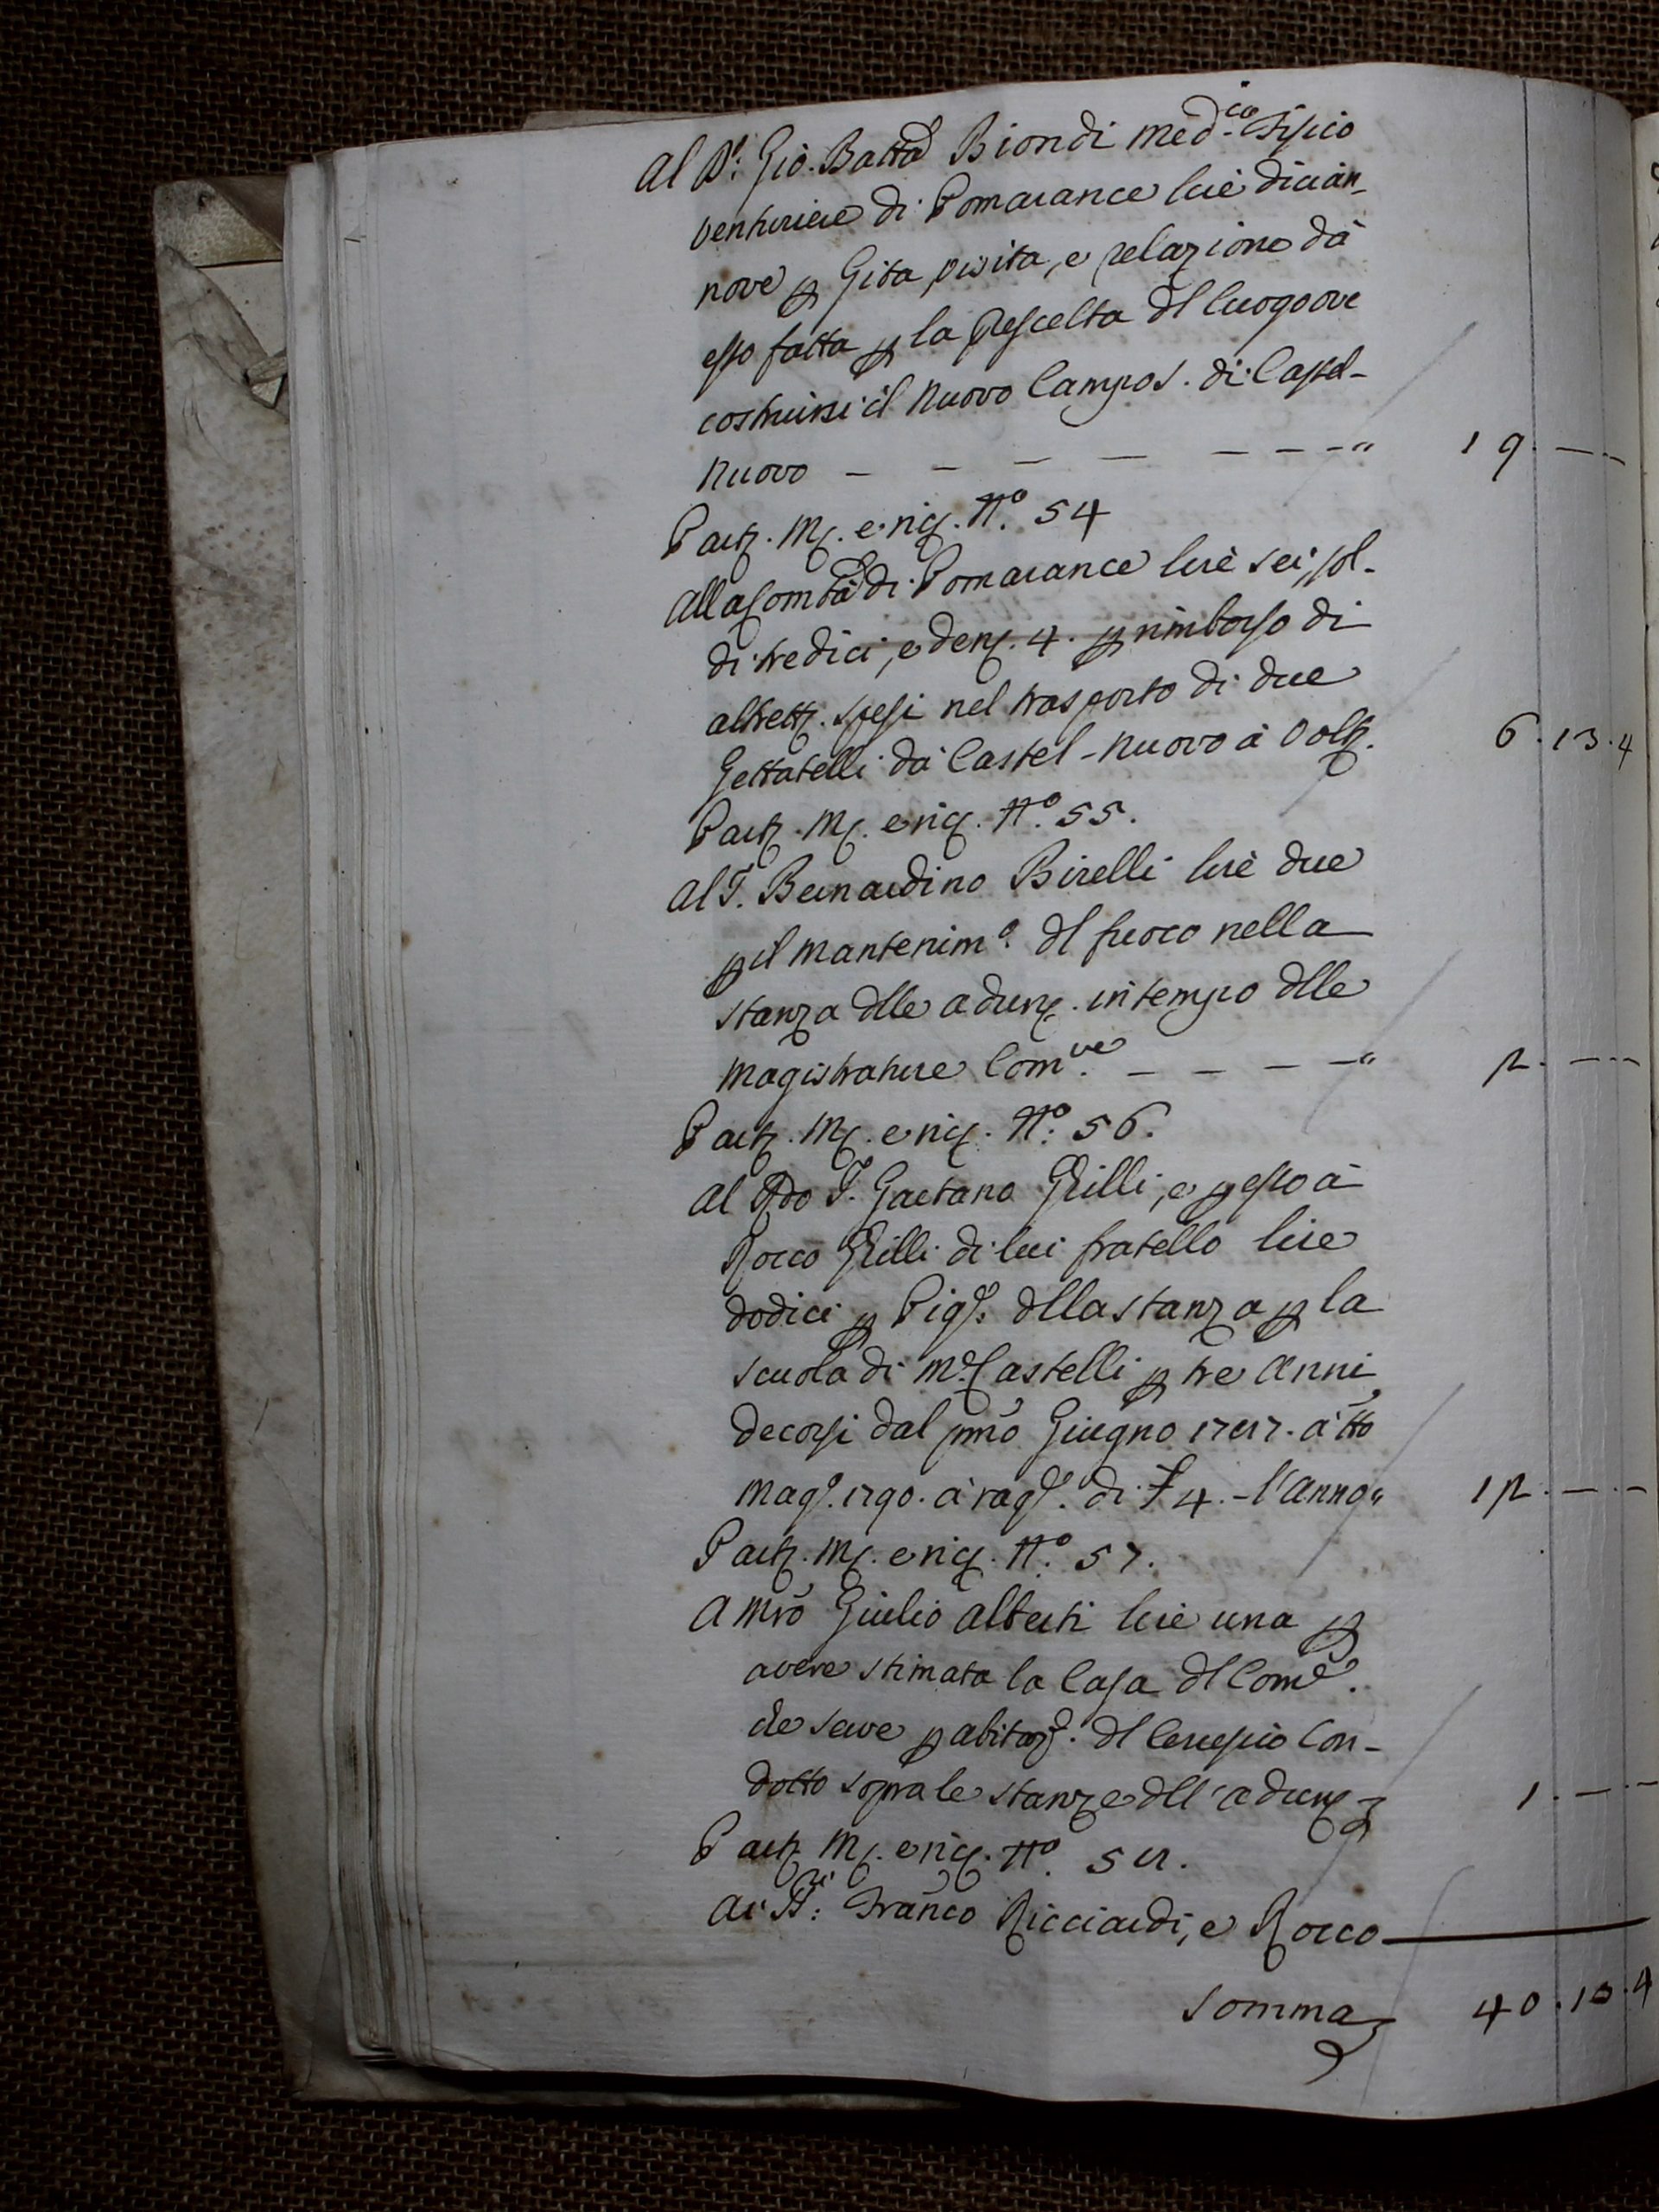 Al D.r Gio. Batta Biondi Med.co Fisico
venturiere di Pomarance lire dician-
nove p Gita, visita, e relazione da
esso fatta p la Prescelta dl luogo ove
costruirsi il nuovo Campo S. di Castel-
nuovo — — — — — — —" 19. — . —
Part. M. e rig. N.º 54
Alla Comtà di Pomarance lire sei, sol-
di tredici, e den. 4. p rimborso di
altrett. spesi nel trasporto di due
Gettatelli da Castel-nuovo a Volt. 6. 13. 4
Part. M. e rig. N.º 55.
Al S. Bernardino Birelli lire due
p il mantenim.º dl fuoco nella
stanza dlle adun. in tempo dlle
Magistrature Com.ve — — — —" 2. — . —
Part. M. e rig. N.º 56.
Al Rdo S. Gaetano Grilli, e p esso a
Rocco Grilli di lui fratello lire
dodici p Pig.e dlla stanza p la
scuola di M.e Castelli p tre Anni
decorsi dal pmo Giugno 1787. a tto
Mag.o 1790. a rag.e di £ 4. - l'anno" 12. — . —
Part. M. e rig. N.º 57.
A Mro Giulio Alberti lire una p
avere stimata la Casa dl Com.e
che serve p abitaz.e dl Cerusico Con-
dotto sopra le stanze dll'adun. 1. — . —
Part. M. e rig. N.º 58.
Ai SS.ri Franco Ricciardi, e Rocco
Somma 40. 13. 4